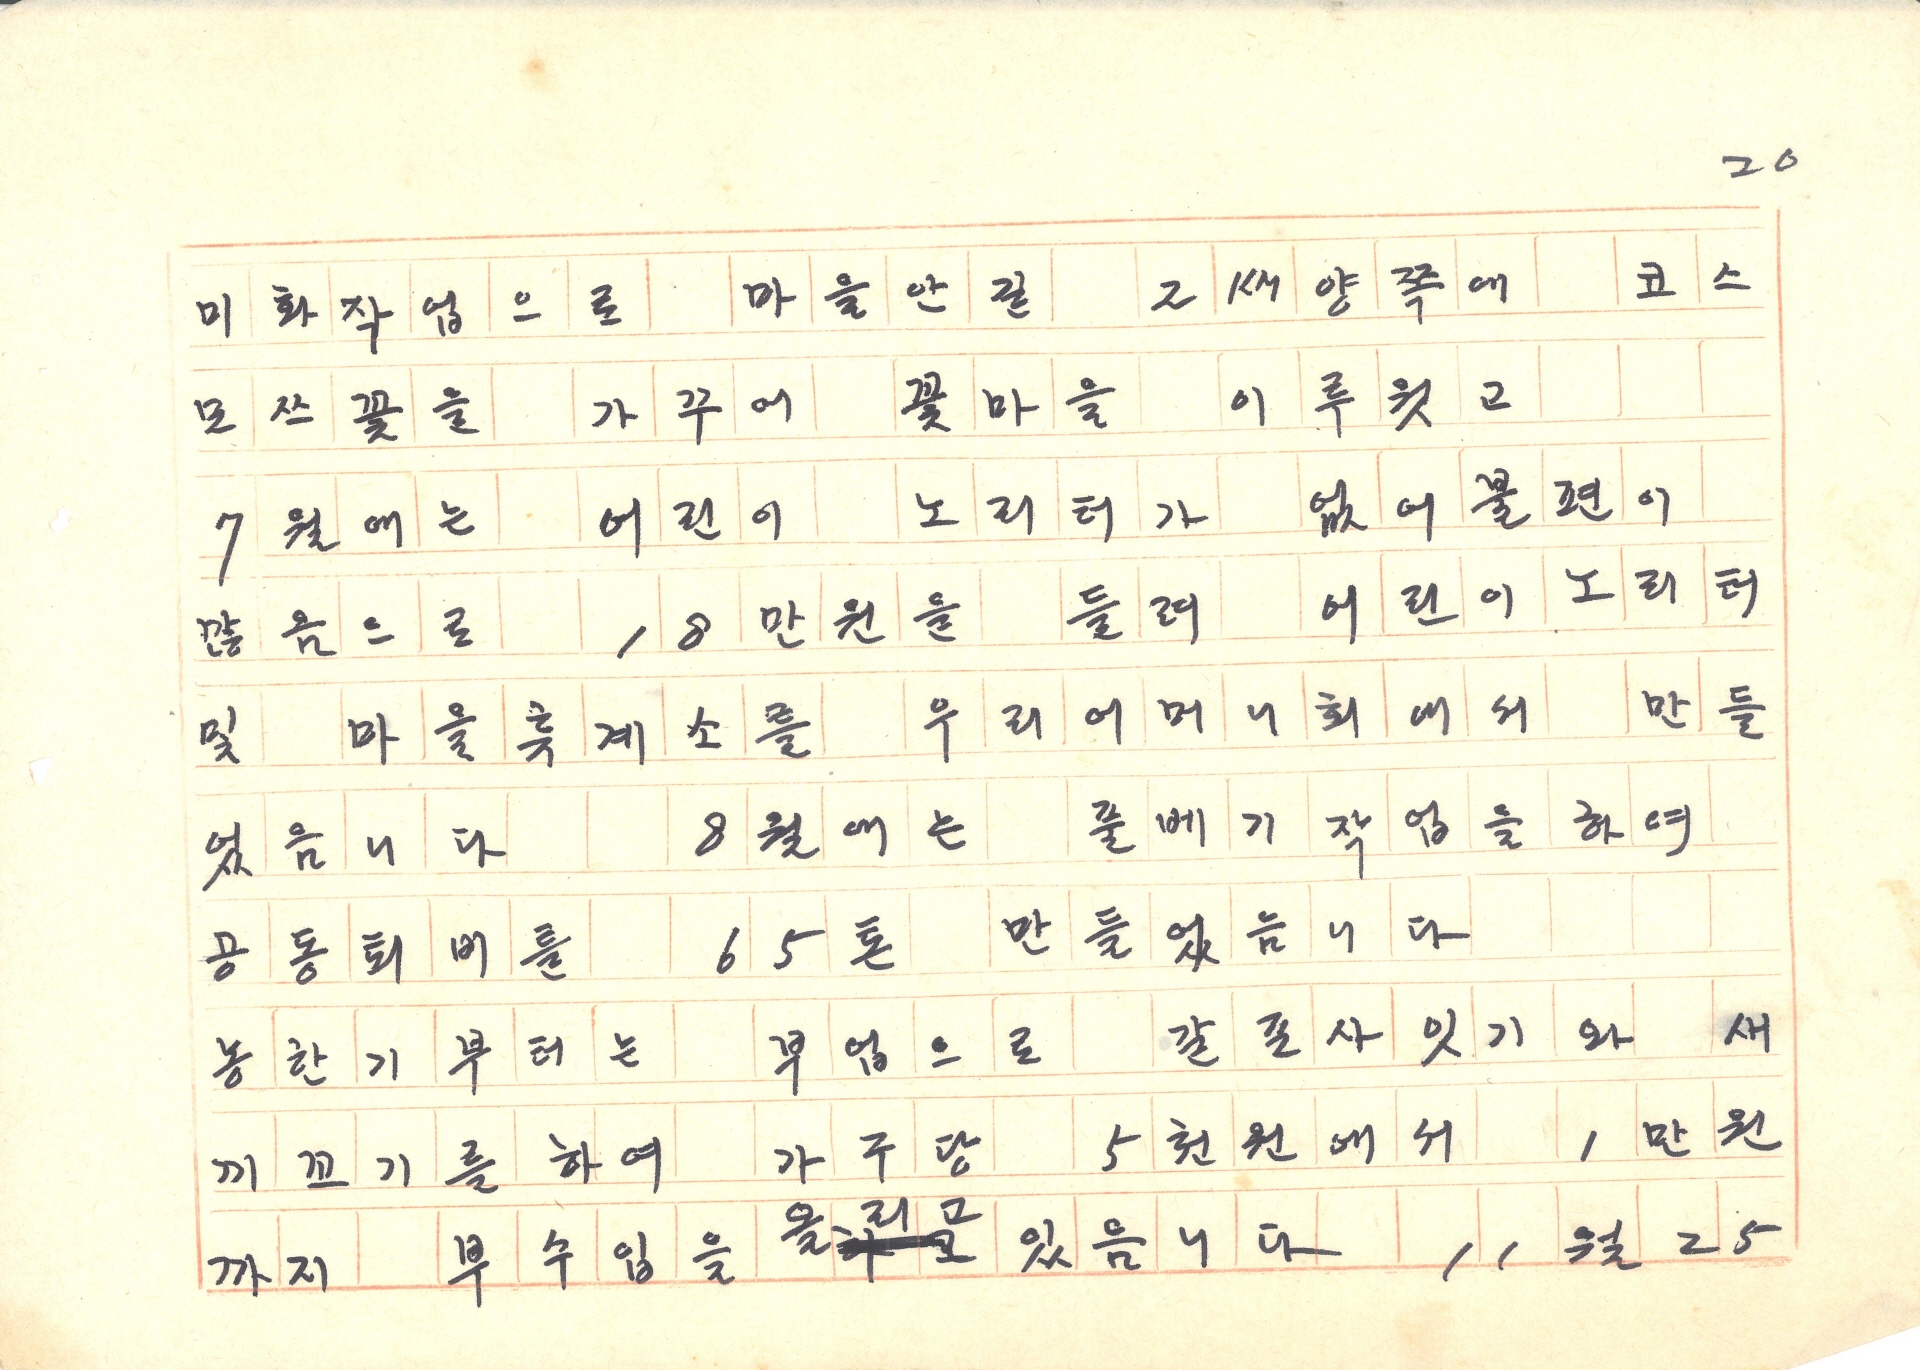 20
미화작업으로 마을안길 2㎞양쪽에 코스
모쓰꽃을 가꾸어 꽃마을 이루웟고
7월에는 어린이 노리터가 없어불편이
많음으로 18만원을 들려 어린이노리터
및 마을휴계소를 우리어머니회에서 만들
었음니다 8월에는 풀베기작업을하여
공동퇴비를 65톤 만들었음니다
농한기부터는 부업으로 갈포사잇기와 새
끼꼬기를하여 가구당 5천원에서 1만원
까지 부수입을 올리고 있음니다 11월25